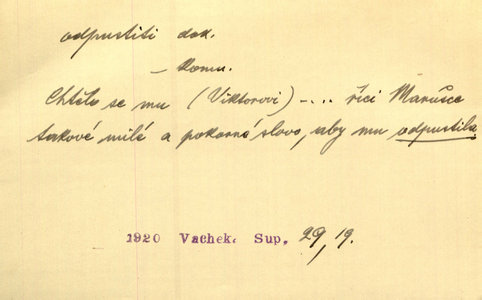 odpustiti dok.
– komu.
Chtělo se mu (Viktorovi) –... říci Marušce
takové milé a pokorné slovo, aby mu odpustila.
1920 Vachek. Sup. 29, 19.